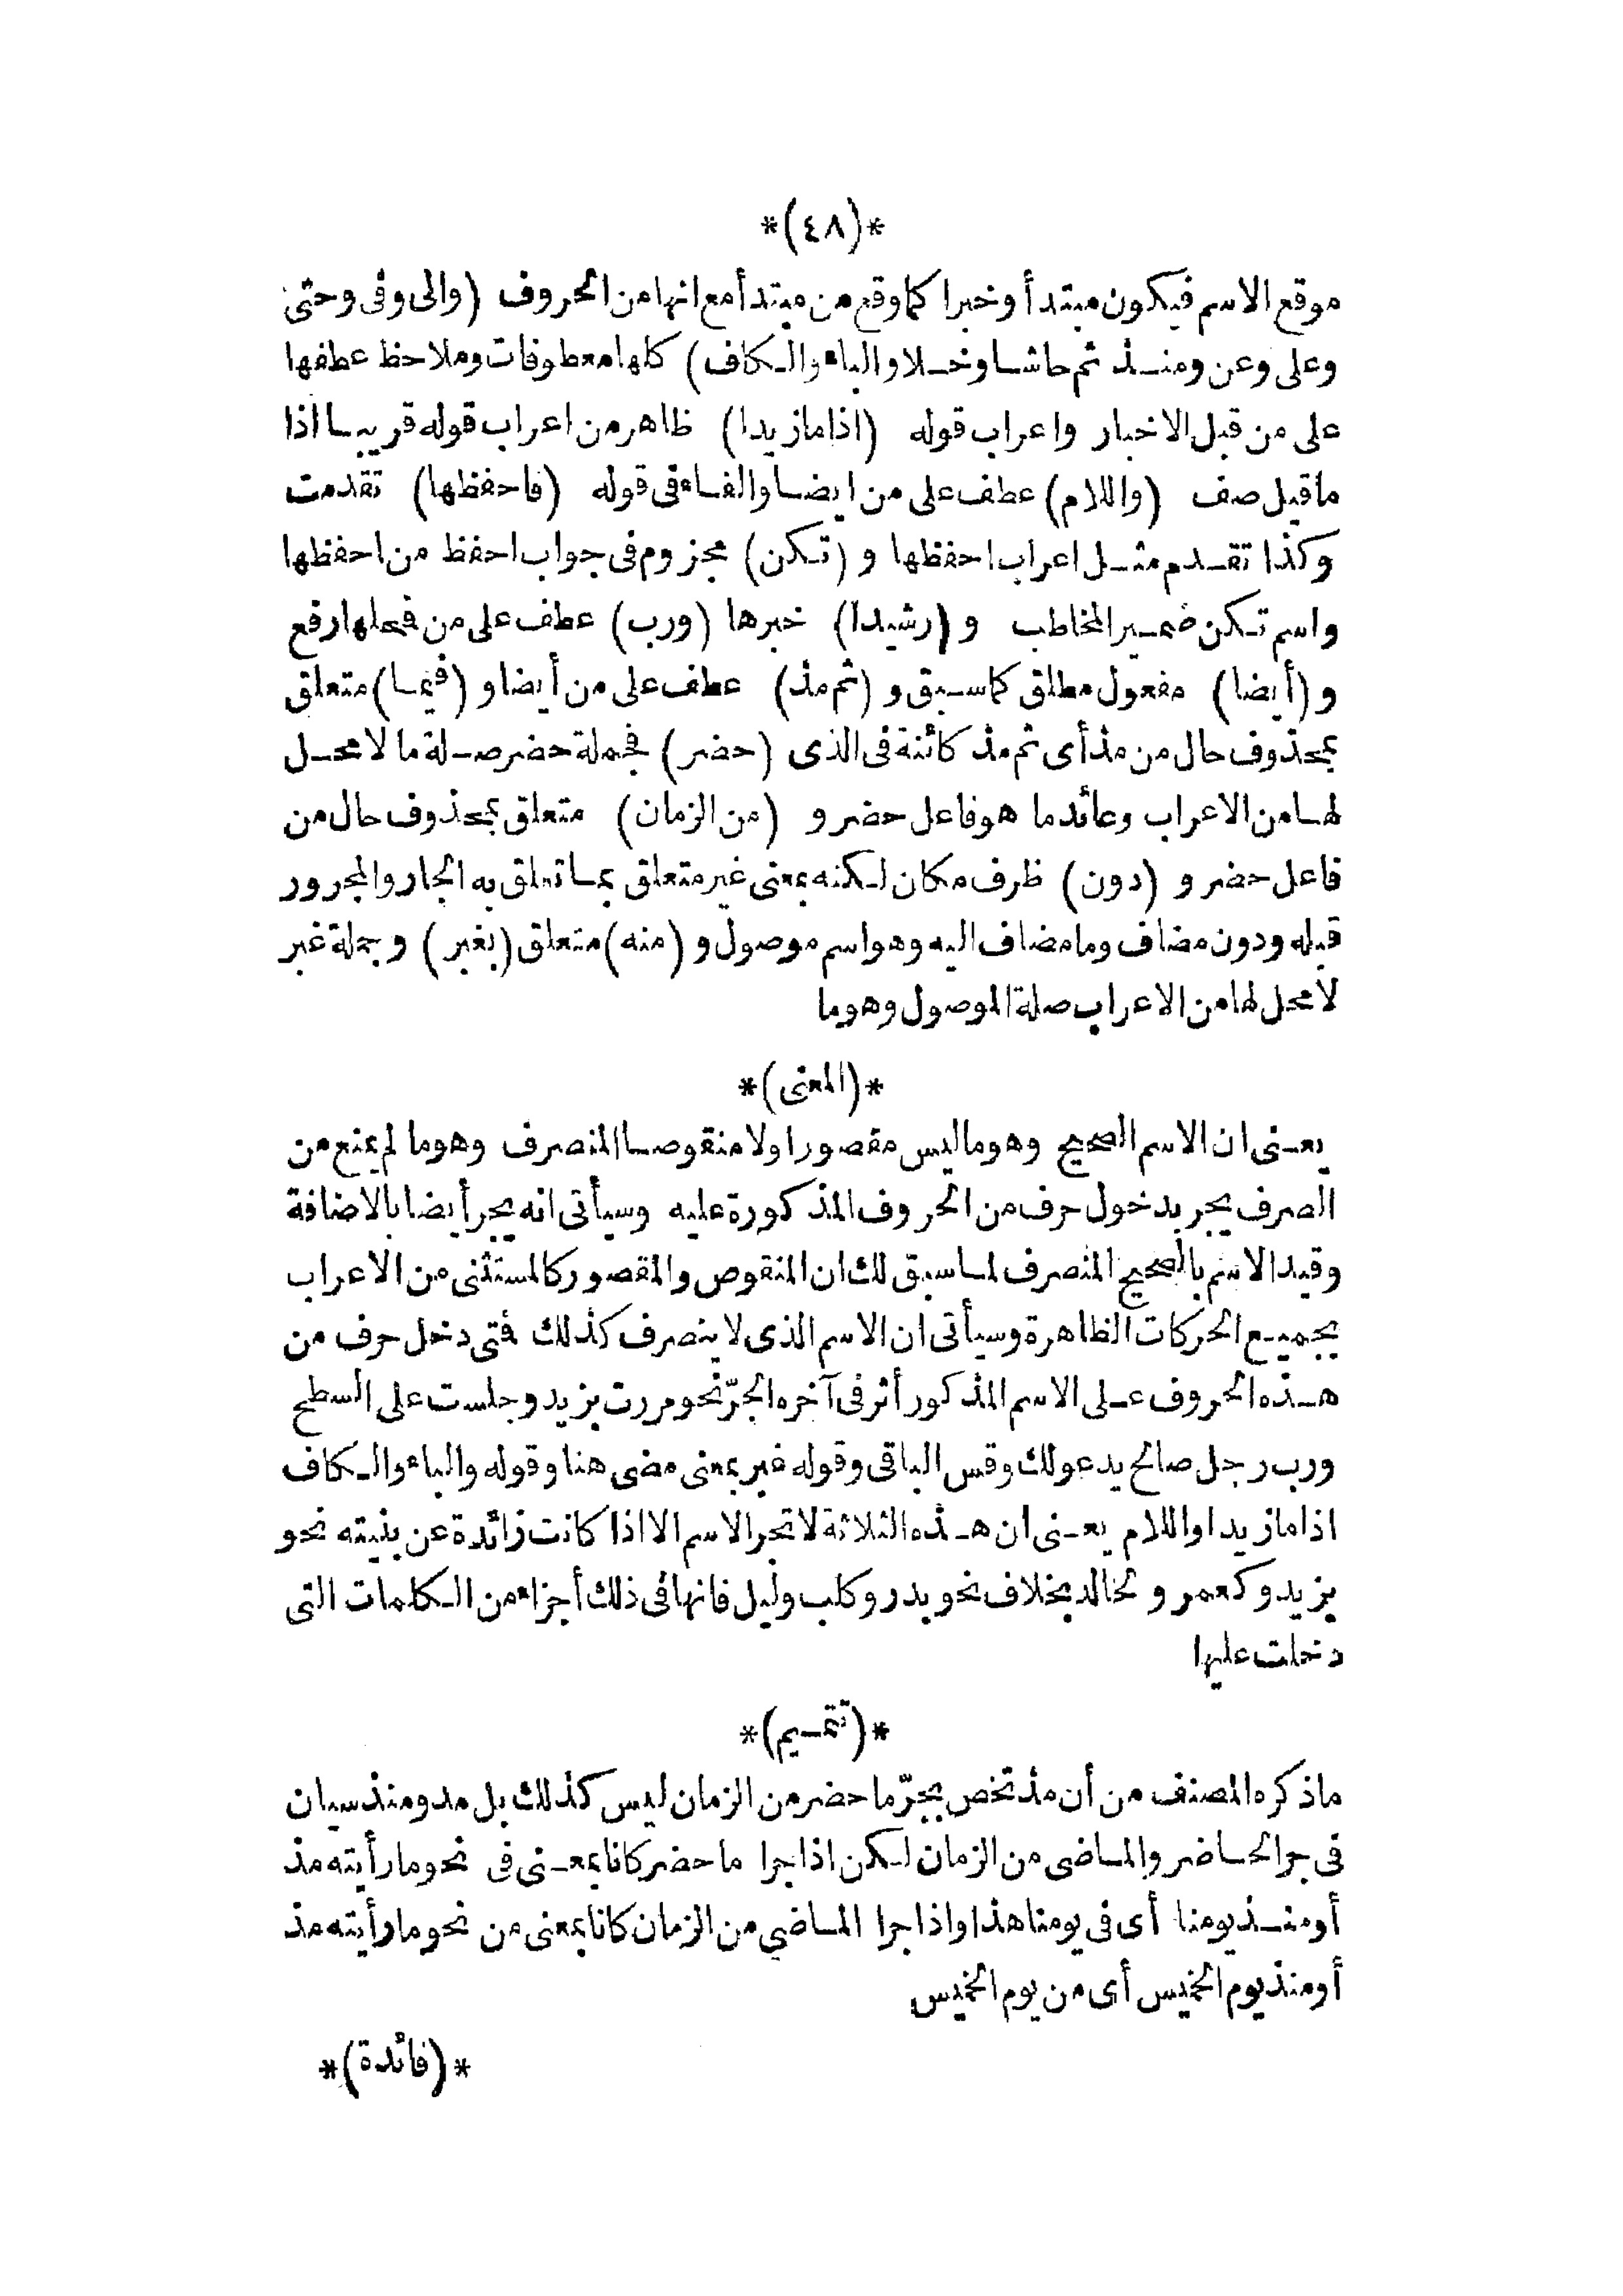 *(٤٨)*
موقع الاسم فيكون مبتدأ وخبرا كما وقع من مبتدأ مع انها من الحروف (والى وفى وحتى
وعلى وعن ومنذ ثم حاشا وخلا والباء والكاف) كلها معطوفات وملاحظ عطفها
على من قبل الاخبار واعراب قوله (اذا ما زيدا) ظاهر من اعراب قوله قريبا اذا
ما قيل صف (واللام) عطف على من ايضا والفاء فى قوله (فاحفظها) تقدمت
وكذا تقدم مثل اعراب احفظها و (تكن) مجزوم فى جواب احفظ من احفظها
واسم تكن ضمير المخاطب و (رشيدا) خبرها (ورب) عطف على من فمحلها رفع
و (أيضا) مفعول مطلق كما سبق و (ثم مذ) عطف على من أيضا و (فيما) متعلق
بمحذوف حال من مذ أى ثم مذ كائنة فى الذى (حضر) فجملة حضر صلة ما لا محل
لها من الاعراب وعائد ما هو فاعل حضر و (من الزمان) متعلق بمحذوف حال من
فاعل حضر و (دون) ظرف مكان لكنه بمعنى غير متعلق بما تعلق به الجار والمجرور
قبله ودون مضاف وما مضاف اليه وهو اسم موصول و (منه) متعلق (بغبر) وجملة غبر
لا محل لها من الاعراب صلة الموصول وهو ما
*(المعنى)*
يعنى ان الاسم الصحيح وهو ما ليس مقصورا ولا منقوصا المنصرف وهو ما لم يمنع من
الصرف يجر بدخول حرف من الحروف المذكورة عليه وسيأتى انه يجر أيضا بالاضافة
وقيد الاسم بالصحيح المنصرف لما سبق لك ان المنقوص والمقصور كالمستثنى من الاعراب
بجميع الحركات الظاهرة وسيأتى ان الاسم الذى لا ينصرف كذلك فمتى دخل حرف من
هذه الحروف على الاسم المذكور أثر فى آخره الجرّ نحو مررت بزيد وجلست على السطح
ورب رجل صالح يدعو لك وقس الباقى وقوله غبر بمعنى مضى هنا وقوله والباء والكاف
اذا ما زيدا واللام يعنى ان هذه الثلاثة لا تجر الاسم الا اذا كانت زائدة عن بنيته نحو
بزيد وكعمرو ولخالد بخلاف نحو بدر وكلب وليل فانها فى ذلك أجزاء من الكلمات التى
دخلت عليها
*(تتميم)*
ما ذكره المصنف من أن مذ تختص بجرّ ما حضر من الزمان ليس كذلك بل مد ومنذ سيان
فى جر الحاضر والماضى من الزمان لكن اذا جرا ما حضر كانا بمعنى فى نحو ما رأيته مذ
أو منذ يومنا أى فى يومنا هذا واذا جرا الماضي من الزمان كانا بمعنى من نحو ما رأيته مذ
أو منذ يوم الخميس أى من يوم الخميس
*(فائدة)*